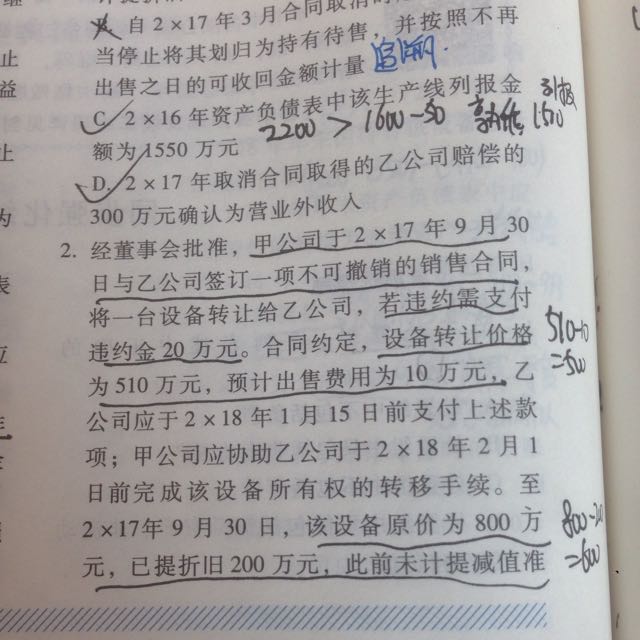 自 2×17 年 3 月合同取消时
止 当停止将其划归为持有待售，并按照不再
益 出售之日的可收回金额计量 追溯
C. 2×16 年资产负债表中该生产线列报金
2200 > 1600-50
止 额为 1550 万元
D. 2×17 年取消合同取得的乙公司赔偿的
为 300 万元确认为营业外收入
2. 经董事会批准，甲公司于 2×17 年 9 月 30
日与乙公司签订一项不可撤销的销售合同，
表 将一台设备转让给乙公司，若违约需支付
违约金 20 万元。合同约定，设备转让价格
510-10
应 为 510 万元，预计出售费用为 10 万元，乙
=500
公司应于 2×18 年 1 月 15 日前支付上述款
项；甲公司应协助乙公司于 2×18 年 2 月 1
日前完成该设备所有权的转移手续。至
2×17年 9 月 30 日，该设备原价为 800 万
800-200
元，已提折旧 200 万元，此前未计提减值准
=600